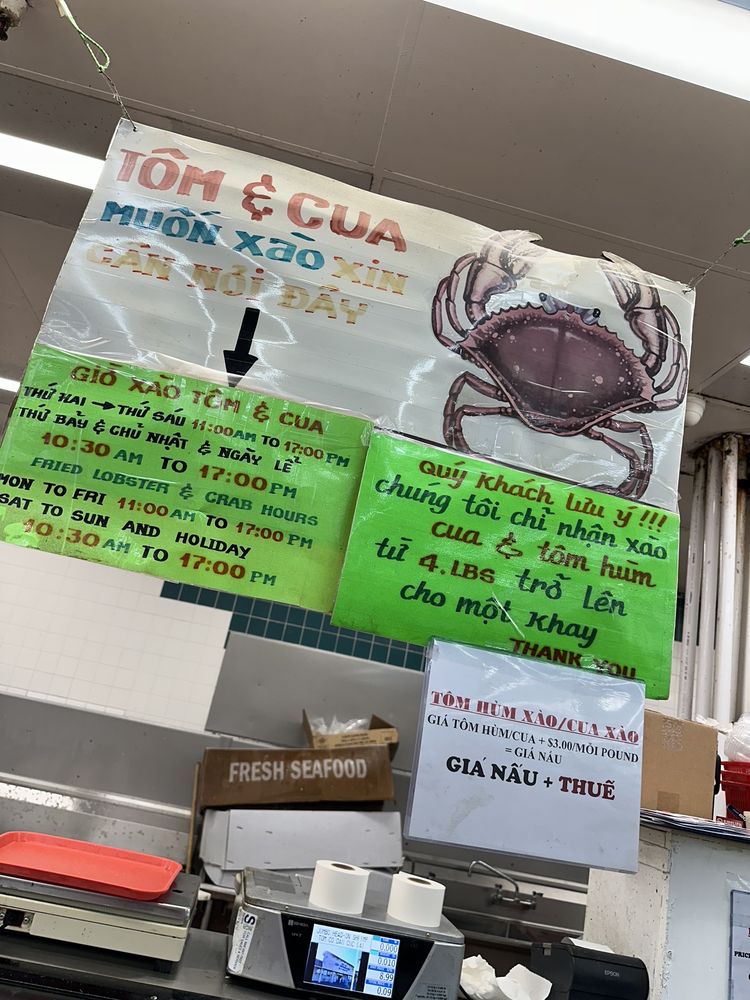 TÔM & CUA
MUỐN XÀO XIN
CÂN NƠI ĐÂY
GIỜ XÀO TÔM & CUA
THỨ HAI → THỨ SÁU 11:00 AM TO 17:00 PM
THỨ BẢY & CHỦ NHẬT & NGÀY LỄ
10:30 AM TO 17:00 PM
FRIED LOBSTER & CRAB HOURS
MON TO FRI 11:00 AM TO 17:00 PM
SAT TO SUN AND HOLIDAY
10:30 AM TO 17:00 PM
Quý Khách lưu ý!!!
chúng tôi chỉ nhận xào
cua & tôm hùm
từ 4.LBS trở lên
cho một khay
THANK YOU
TÔM HÙM XÀO/CUA XÀO
GIÁ TÔM HÙM/CUA + $3.00/MỖI POUND
= GIÁ NẤU
GIÁ NẤU + THUẾ
FRESH SEAFOOD
JUMBO HEAD-ON SHRIMP
0.00
0.010
8.99
0.09
EPSON